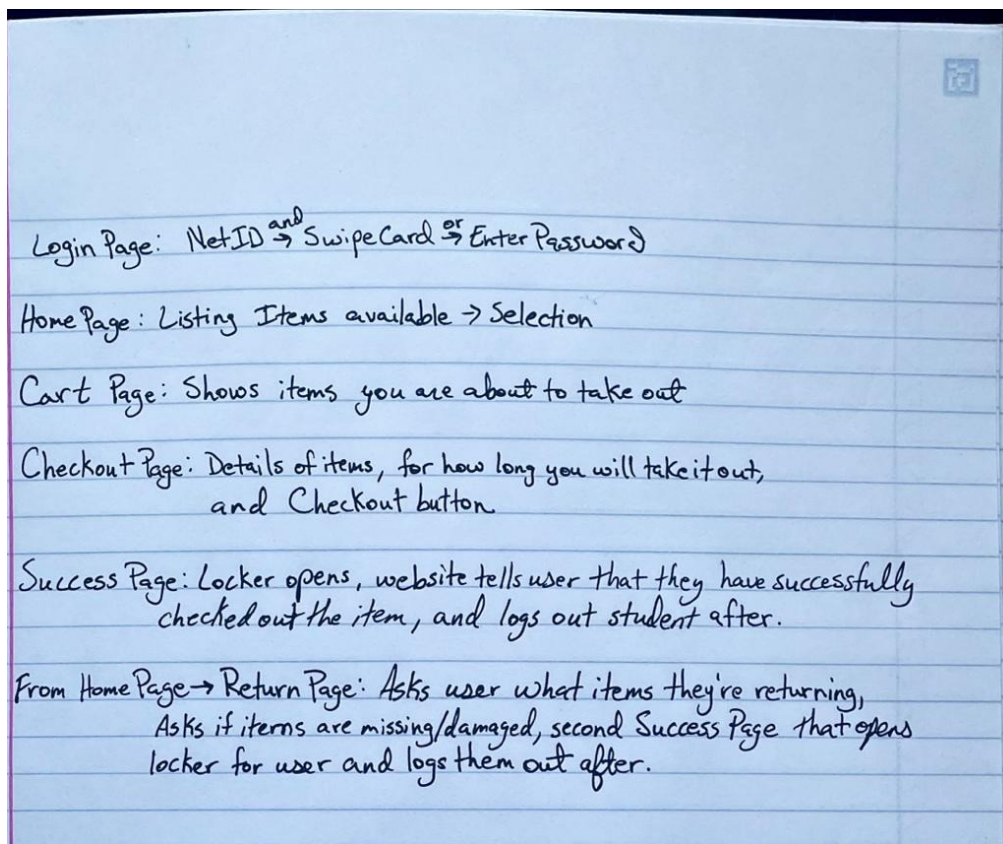 Login Page: NetID and→ SwipeCard or→ Enter Password
Home Page: Listing Items available → Selection
Cart Page: Shows items you are about to take out
Checkout Page: Details of items, for how long you will take it out,
and Checkout button
Success Page: Locker opens, website tells user that they have successfully
checked out the item, and logs out student after.
From Home Page → Return Page: Asks user what items they're returning,
Asks if items are missing/damaged, second Success Page that opens
locker for user and logs them out after.